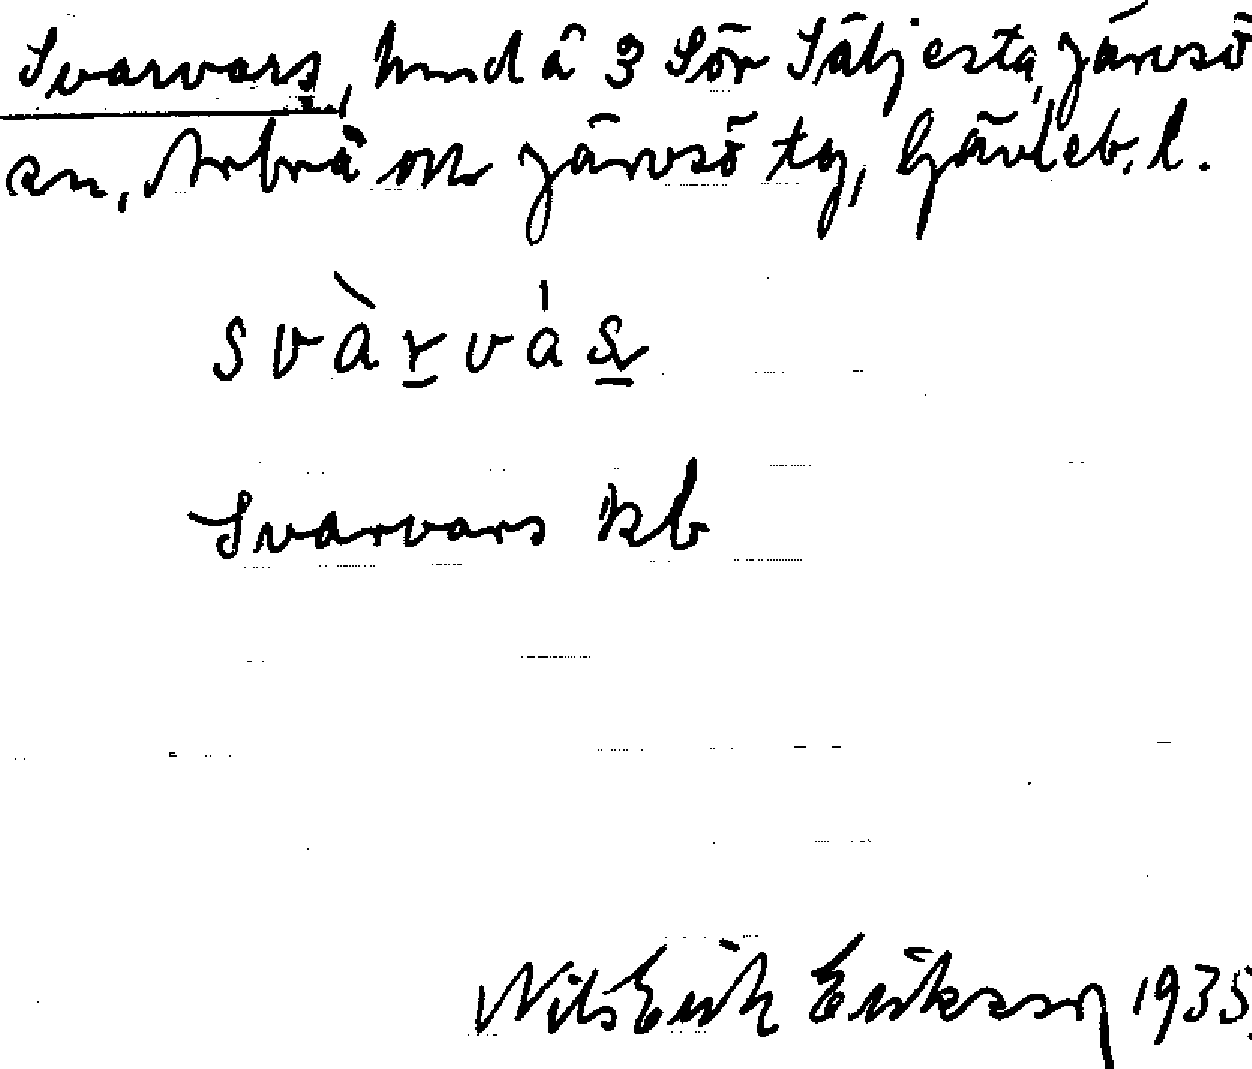 Svarvars, hmd å 3 Sör Säljesta, Järvsö
sn, Arbrå och Järvsö tg, Gävleb. l.
svàr̲vás̲
Svarvars kb
Nils Erik Eriksson 1935.